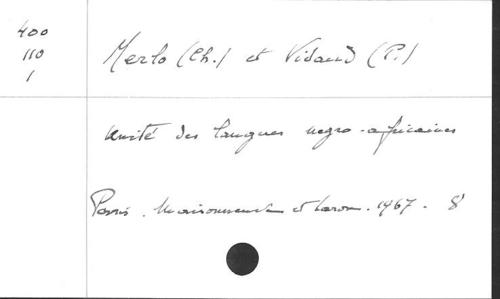 400
110
1
Merlo (Ch.) et Vidaud (P.)
Unité des langues negro-africaines
Paris. Maisonneuve et Larose. 1967. 8°